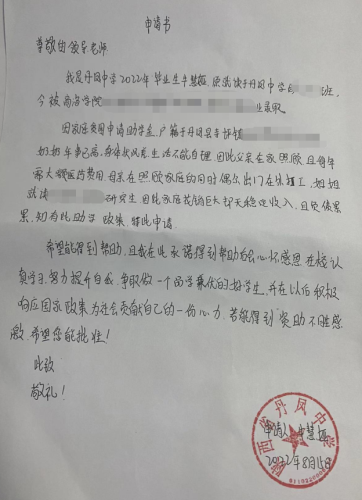 申请书
尊敬的领导老师
我是丹凤中学2022年毕业生牛慧娅,原就读于丹凤中学 班,
今被商洛学院 业录取。
因家庭贫困申请助学金,户籍于丹凤县
奶奶年事已高,身体状况差,生活不能自理,因此父亲在家照顾,且每年
需大额医药费用,母亲在照顾家庭的同时偶尔出门在外打工,姐姐
就读 研究生因此家庭花销巨大却无稳定收入,且负债累
累,知有此助学政策,特此申请
希望能得到帮助,且我在此承诺得到帮助后会心怀感恩,在校认
真学习,努力提升自我,争取做一个品学兼优的好学生,并在以后积极
响应国家政策为社会贡献自己的一份心力,若能得到资助不胜感
激,希望您能批准!
此致
敬礼!
陕西省丹凤中学
申请人:牛慧娅
2022年8月15日